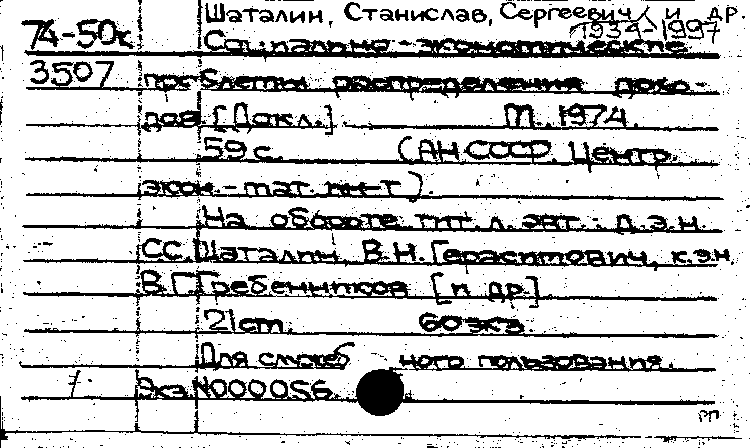 Шаталин, Станислав, Сергеевич и др.
1934-1997
74-50к Социально-экономические
3507 проблемы распределения дохо-
дов [Докл.] М., 1974.
59 с. (АН СССР. Центр.
экон.-мат. ин-т).
На обороте тит. л. авт.: д.э.н.
С.С.Шаталин, В.Н.Герасимович, к.э.н.
В.Г.Гребенников [и др.]
21 cm. 60 экз.
Для служебного пользования.
Экз. №000056.
рп